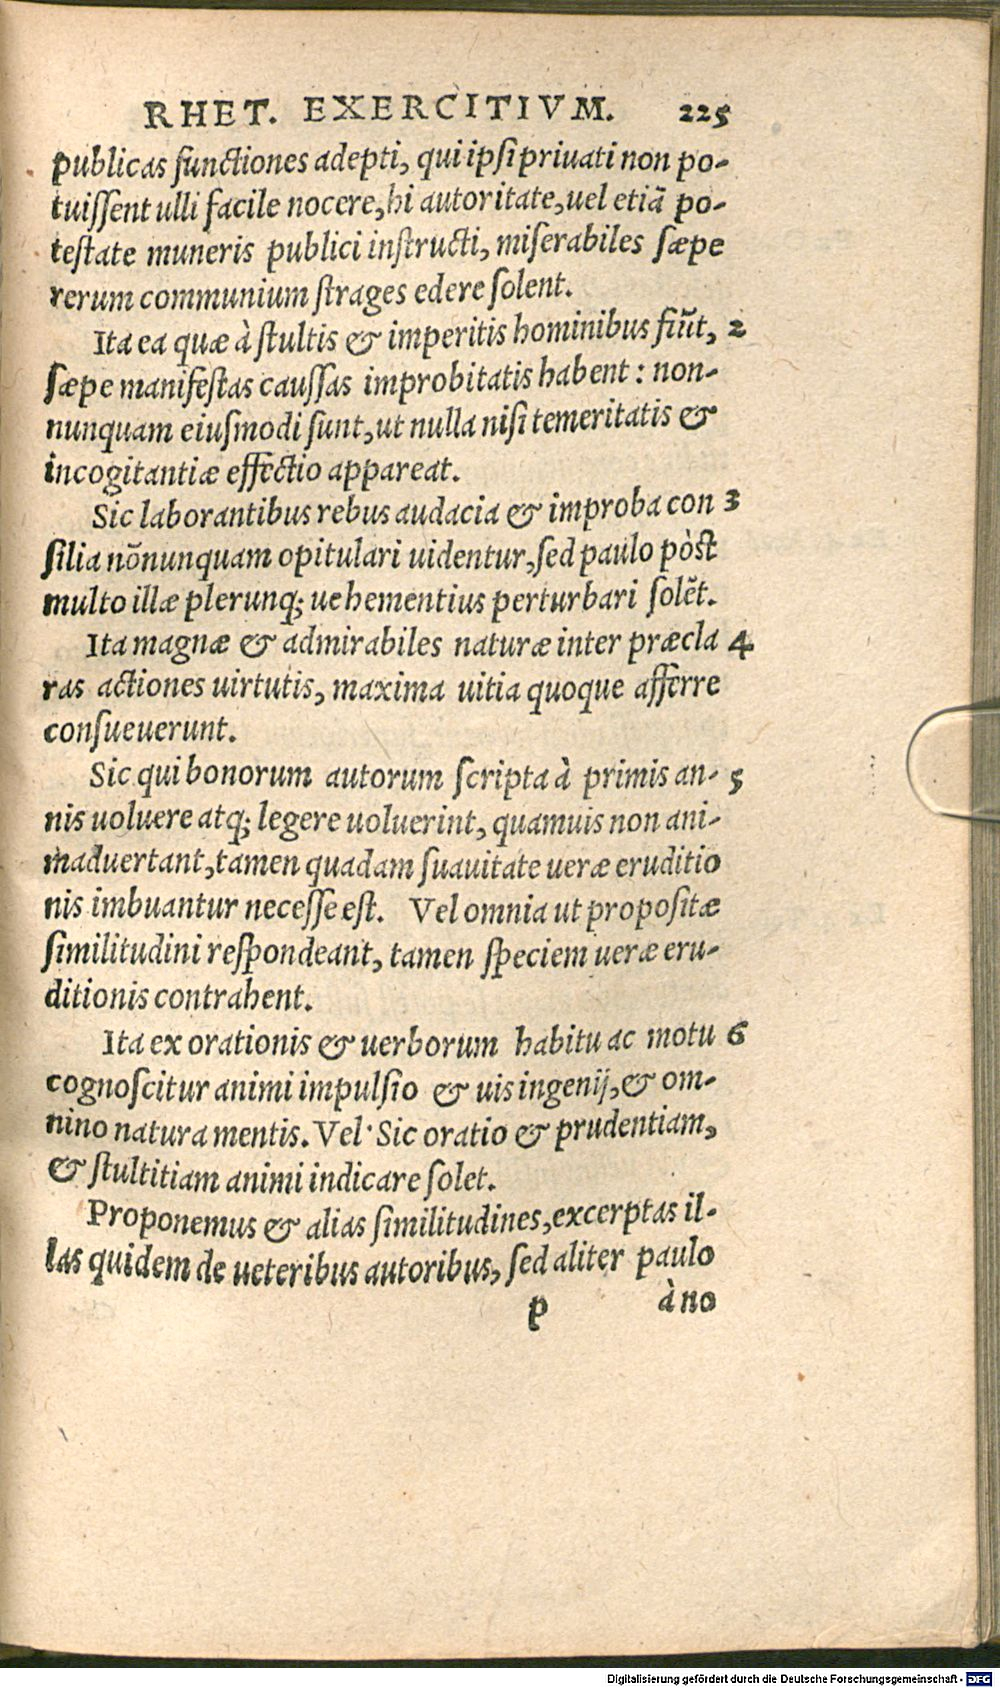 RHET. EXERCITIVM. 225
publicas functiones adepti, qui ipsi priuati non po-
tuissent ulli facile nocere, hi autoritate, uel etiã po-
testate muneris publici instructi, miserabiles sæpe
rerum communium strages edere solent.
Ita ea quæ à stultis & imperitis hominibus fiũt, 2
sæpe manifestas caussas improbitatis habent: non-
nunquam eiusmodi sunt, ut nulla nisi temeritatis &
incogitantiæ effectio appareat.
Sic laborantibus rebus audacia & improba con 3
silia nõnunquam opitulari uidentur, sed paulo pòst
multo illæ plerunq; uehementius perturbari solẽt.
Ita magnæ & admirabiles naturæ inter præcla 4
ras actiones uirtutis, maxima uitia quoque afferre
consueuerunt.
Sic qui bonorum autorum scripta à primis an- 5
nis uoluere atq; legere uoluerint, quamuis non ani-
maduertant, tamen quadam suauitate ueræ eruditio
nis imbuantur necesse est. Vel omnia ut propositæ
similitudini respondeant, tamen speciem ueræ eru-
ditionis contrahent.
Ita ex orationis & uerborum habitu ac motu 6
cognoscitur animi impulsio & uis ingenij, & om-
nino natura mentis. Vel· Sic oratio & prudentiam,
& stultitiam animi indicare solet.
Proponemus & alias similitudines, excerptas il-
las quidem de ueteribus autoribus, sed aliter paulo
p à no
Digitalisierung gefördert durch die Deutsche Forschungsgemeinschaft - DFG